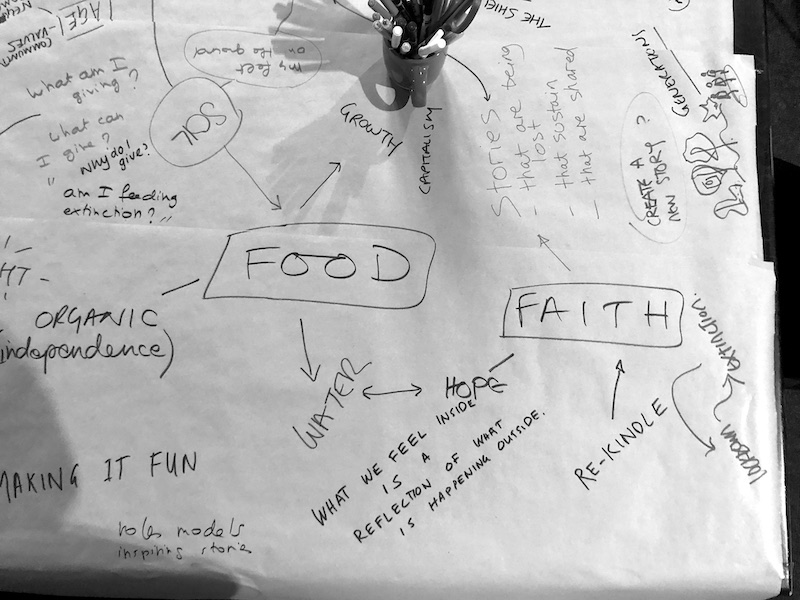 AGE
VALUES
THE SHIE
my feet
on the ground
SOIL
What am I
giving?
What can
I give?
Why do I
give?
"am I feeding
extinction?"
GROWTH
CAPITALISM
STORIES
- that are being
lost
- that sustain
- that are shared
GENERATIONS
CREATE A
NEW STORY?
FOOD
FAITH
HT
ORGANIC
independence)
WATER
HOPE
WHAT WE FEEL INSIDE
IS A
REFLECTION OF WHAT
IS HAPPENING OUTSIDE.
RE-KINDLE
extinction.
MAKING IT FUN
roles models
inspiring stories